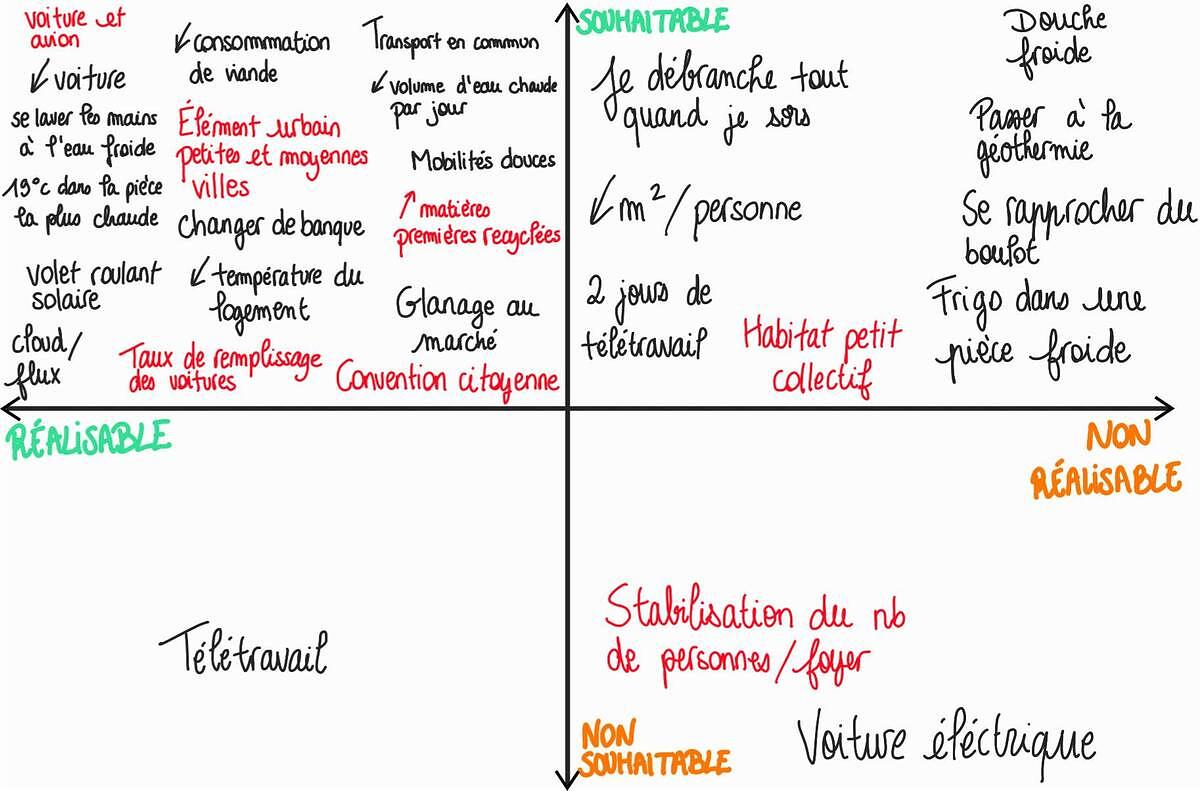 SOUHAITABLE
voiture et
avion
↙ voiture
se laver les mains
à l'eau froide
19°c dans la pièce
la plus chaude
volet roulant
solaire
cloud/
flux
↙ consommation
de viande
Élément urbain
petites et moyennes
villes
Changer de banque
↙ température du
logement
Taux de remplissage
des voitures
Transport en commun
↙ volume d'eau chaude
par jour
Mobilités douces
↗ matières
premières recyclées
Glanage au
marché
Convention citoyenne
Je débranche tout
quand je sors
↙ m²/personne
2 jours de
télétravail
Habitat petit
collectif
Douche
froide
Passer à la
géothermie
Se rapprocher du
boulot
Frigo dans une
pièce froide
RÉALISABLE
NON
RÉALISABLE
Télétravail
Stabilisation du nb
de personnes/foyer
Voiture éléctrique
NON
SOUHAITABLE